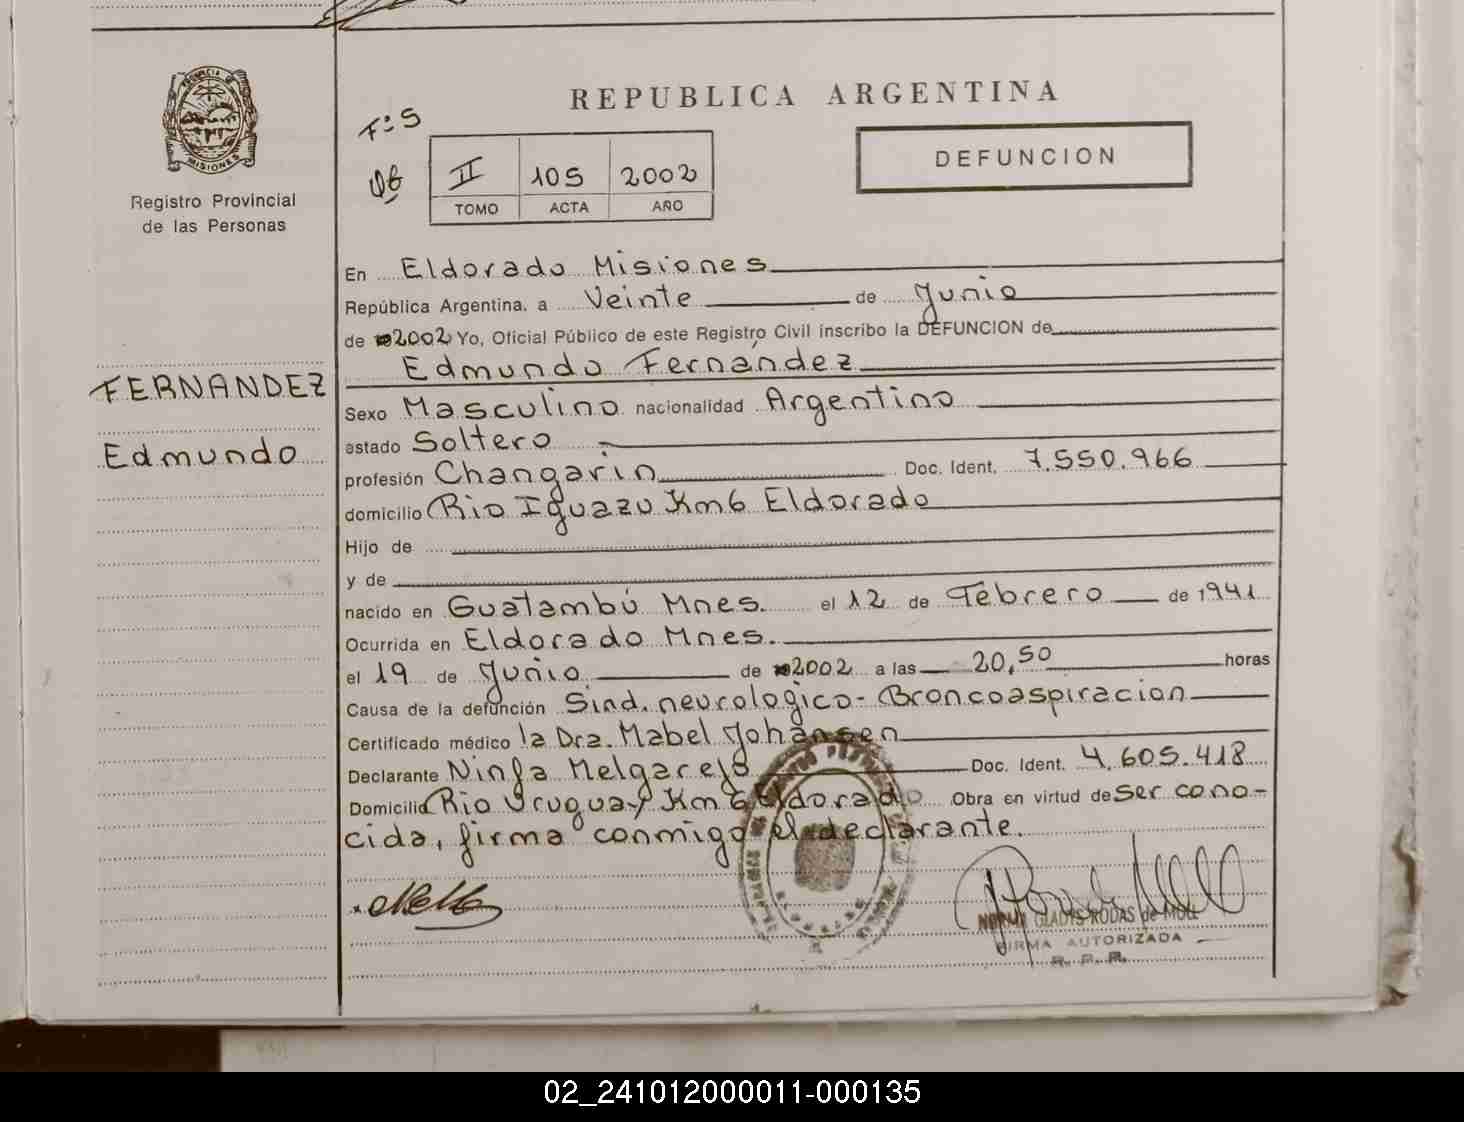 PROVINCIA DE
MISIONES
Registro Provincial
de las Personas
FERNANDEZ
Edmundo
REPUBLICA ARGENTINA
Fº 5
II 105 2002
TOMO ACTA AÑO
DEFUNCION
En Eldorado Misiones
República Argentina, a Veinte de Junio
de 2002 Yo, Oficial Público de este Registro Civil inscribo la DEFUNCION de
Edmundo Fernández
Sexo Masculino nacionalidad Argentino
estado Soltero
profesión Changarin Doc. Ident. 7.550.966
domicilio Rio Iguazu Km6 Eldorado
Hijo de
y de
nacido en Guatambú Mnes. el 12 de Febrero de 1941
Ocurrida en Eldorado Mnes.
el 19 de Junio de 2002 a las 20,50 horas
Causa de la defunción Sind. neurologico - Broncoaspiracion
Certificado médico la Dra. Mabel Johansen
Declarante Ninfa Melgarejo Doc. Ident. 4.605.418
Domicilio Rio Uruguay Km 6 Eldorado Obra en virtud de ser cono-
cida, firma conmigo el declarante.
NORMA GLADYS RODAS de MOLL
FIRMA AUTORIZADA
R. P. P.
02_241012000011-000135